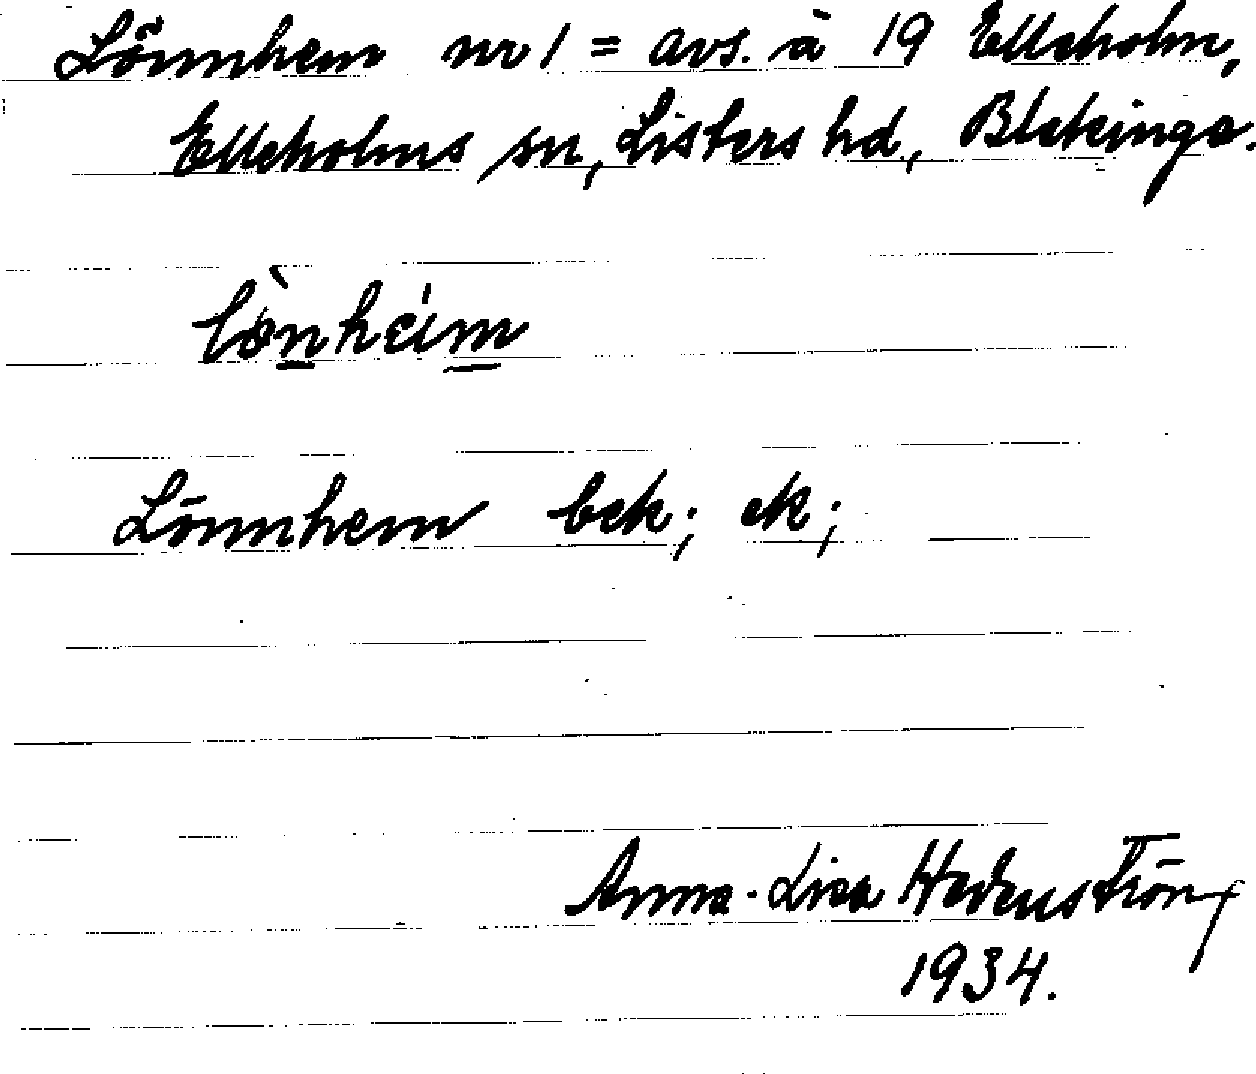 Lönnhem nr 1 = avs. à 19 Elleholm,
Elleholms sn, Listers hd, Blekinge.
lònhèim
Lönnhem bek; ek;
Anna-Lisa Hedenström
1934.